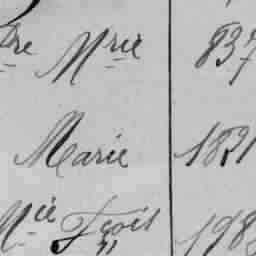 tre Mrie 837
Marie 1831
Mie Fçois 198